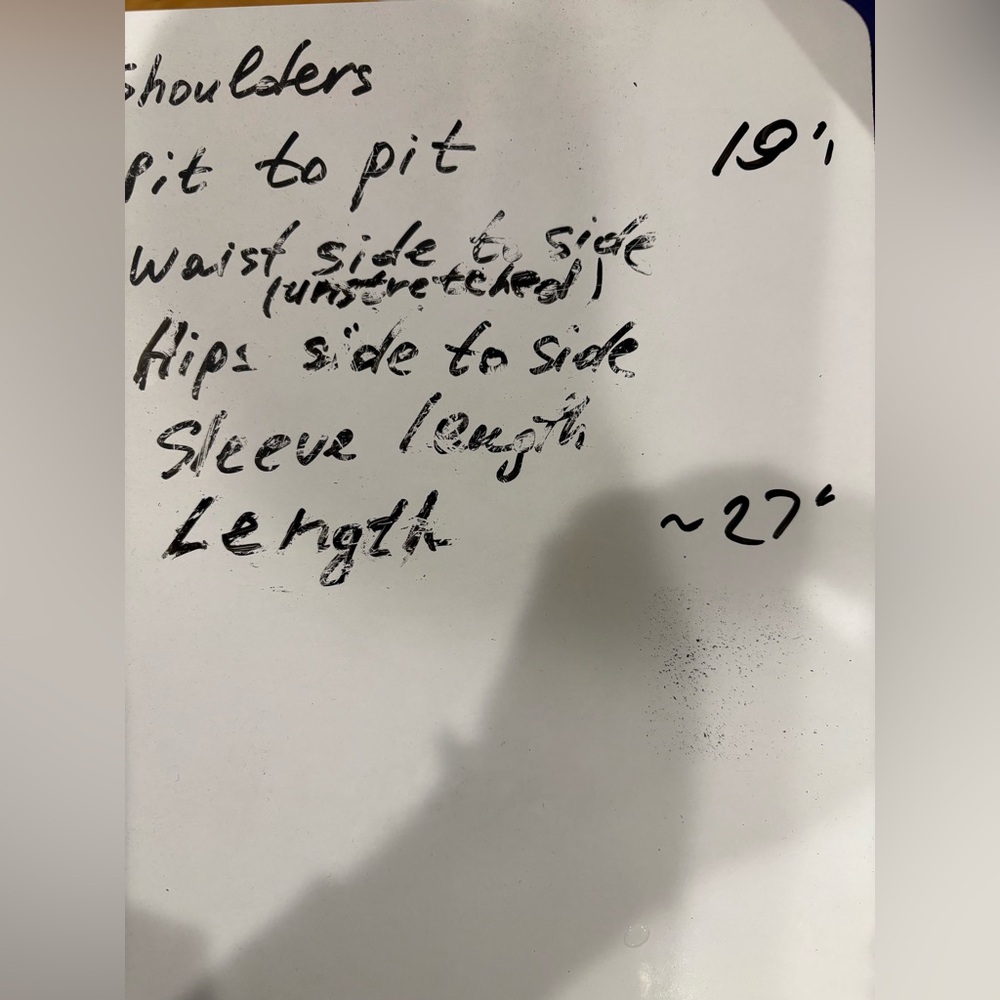 Shoulders
Pit to pit 19"
Waist side to side
(unstretched)
Hips side to side
Sleeve length
Length ~27"